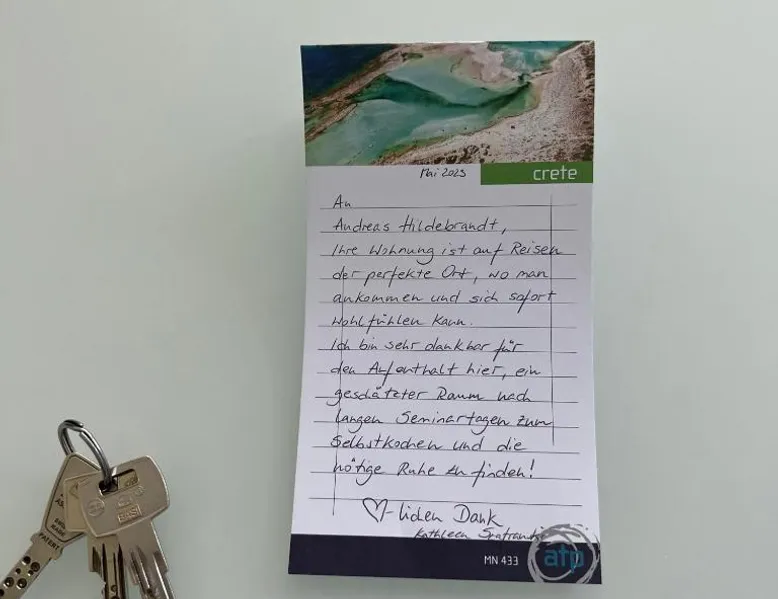 Mai 2025
crete
An
Andreas Hildebrandt,
Ihre Wohnung ist auf Reisen
der perfekte Ort, wo man
ankommen und sich sofort
wohlfühlen kann.
Ich bin sehr dankbar für
den Aufenthalt hier, ein
geschätzter Raum nach
langen Seminartagen zum
Selbstkochen und die
nötige Ruhe zu finden!
♡-lichen Dank
Kathleen
MN 433
atp